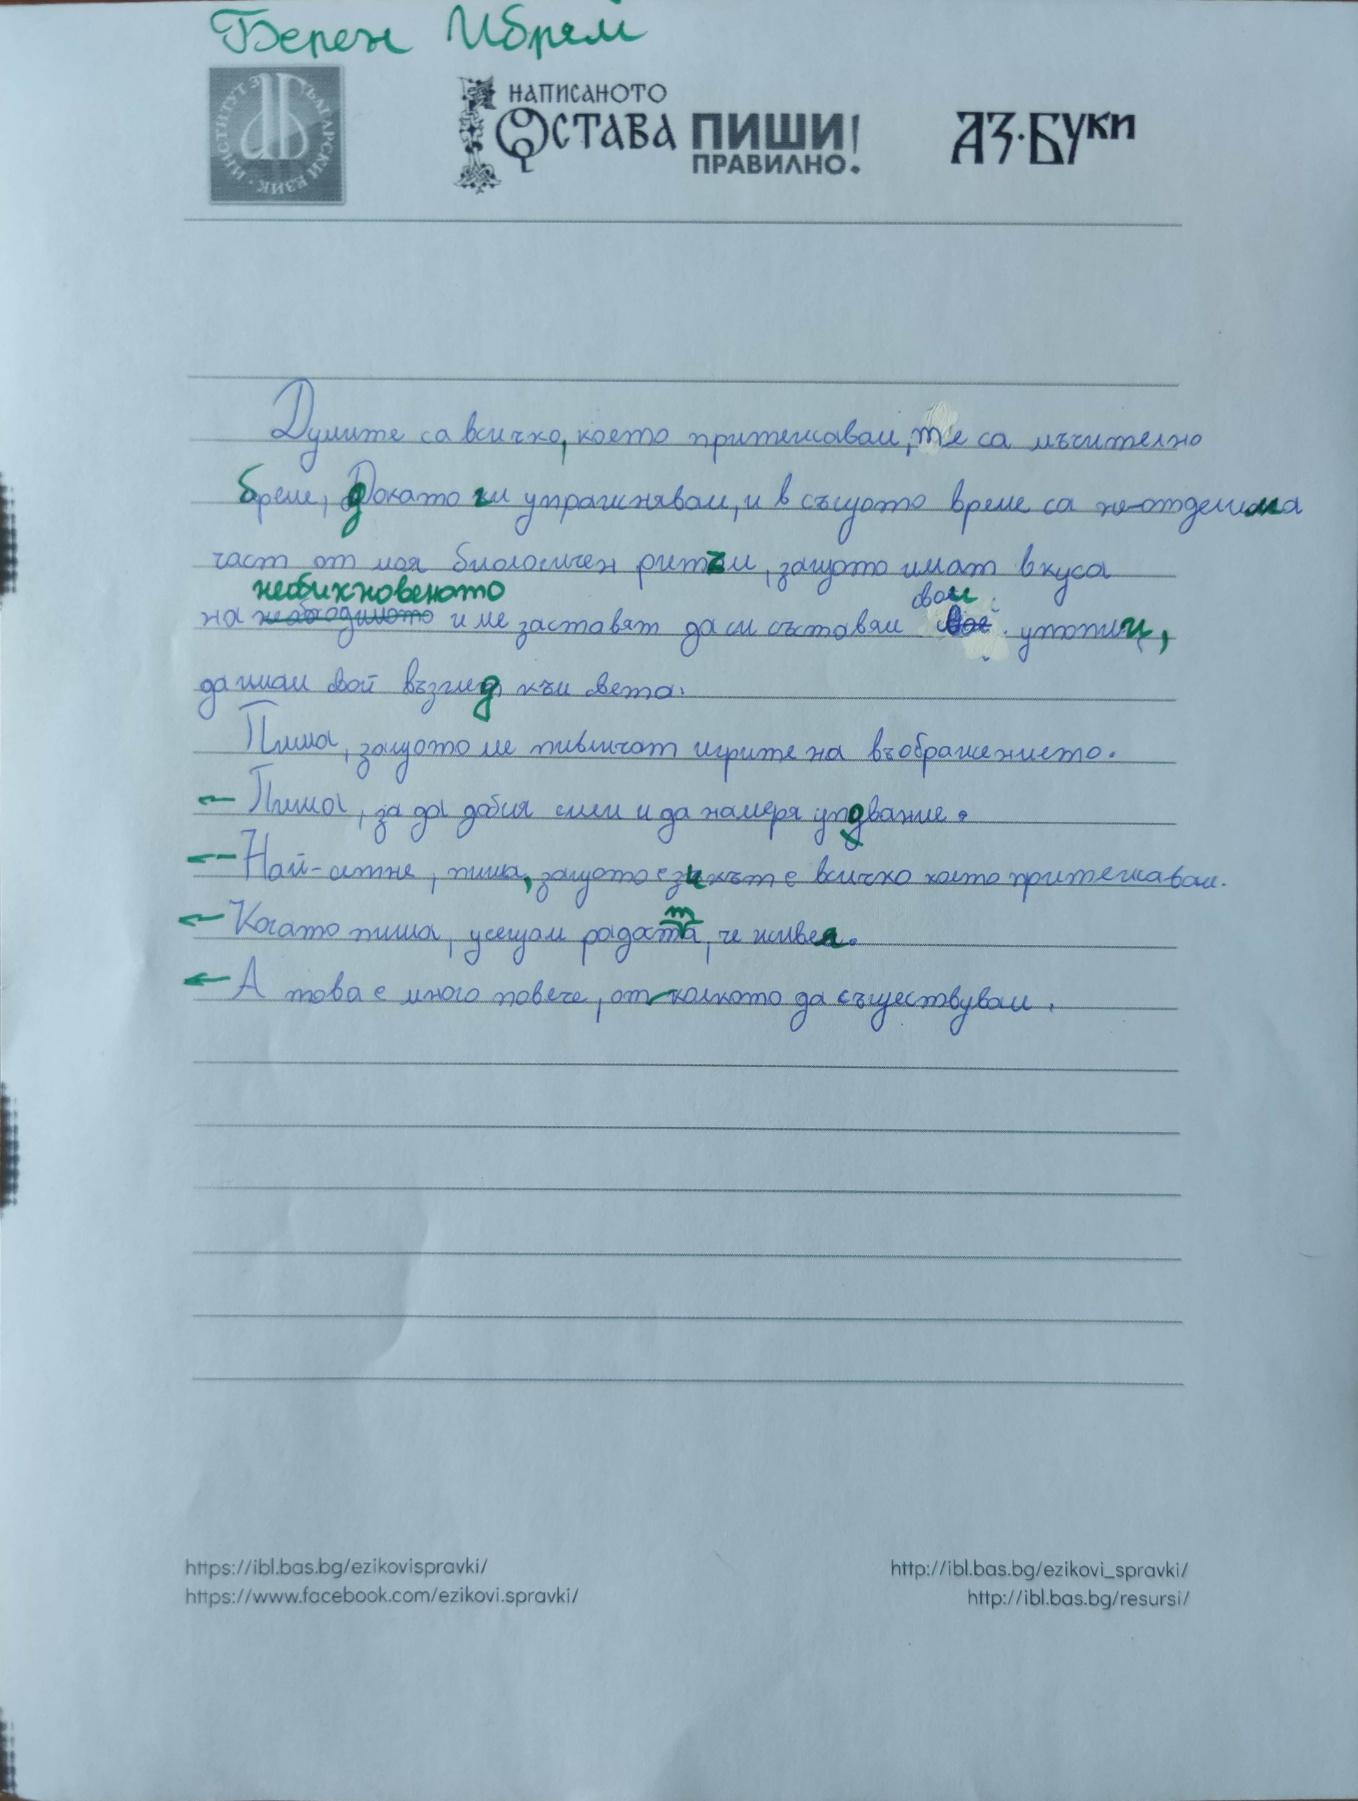 Берен Ибрям
ИНСТИТУТ ЗА БЪЛГАРСКИ ЕЗИК
НАПИСАНОТО
ОСТАВА ПИШИ!
ПРАВИЛНО.
АЗ·БУКИ
Думите са всичко, което притежавам, те са мъчително
бреме, докато ги упражнявам, и в същото време са неотделима
част от моя биологичен ритъм, защото имат вкуса
необикновеното
на необходимото и ме заставят да си съставям свои утопии,
да имам свой възглед към света.
Пиша, защото ме привличат игрите на въображението.
Пиша, за да добия смисъл и да намеря упование.
Най-сетне, пиша, защото езикът е всичко което притежавам.
Когато пиша, усещам радостта, че живея.
А това е много повече, отколкото да съществувам.
https://ibl.bas.bg/ezikovispravki/
https://www.facebook.com/ezikovi.spravki/
http://ibl.bas.bg/ezikovi_spravki/
http://ibl.bas.bg/resursi/